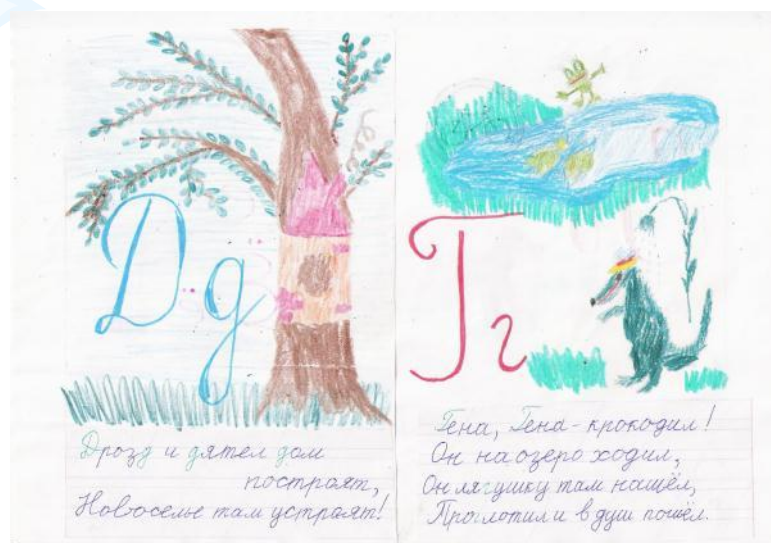 Д д
Дрозд и дятел дом
построят,
Новоселье там устроят!
Г г
Гена, Гена - крокодил!
Он на озеро ходил,
Он лягушку там нашёл,
Проглотил и в душ пошёл.